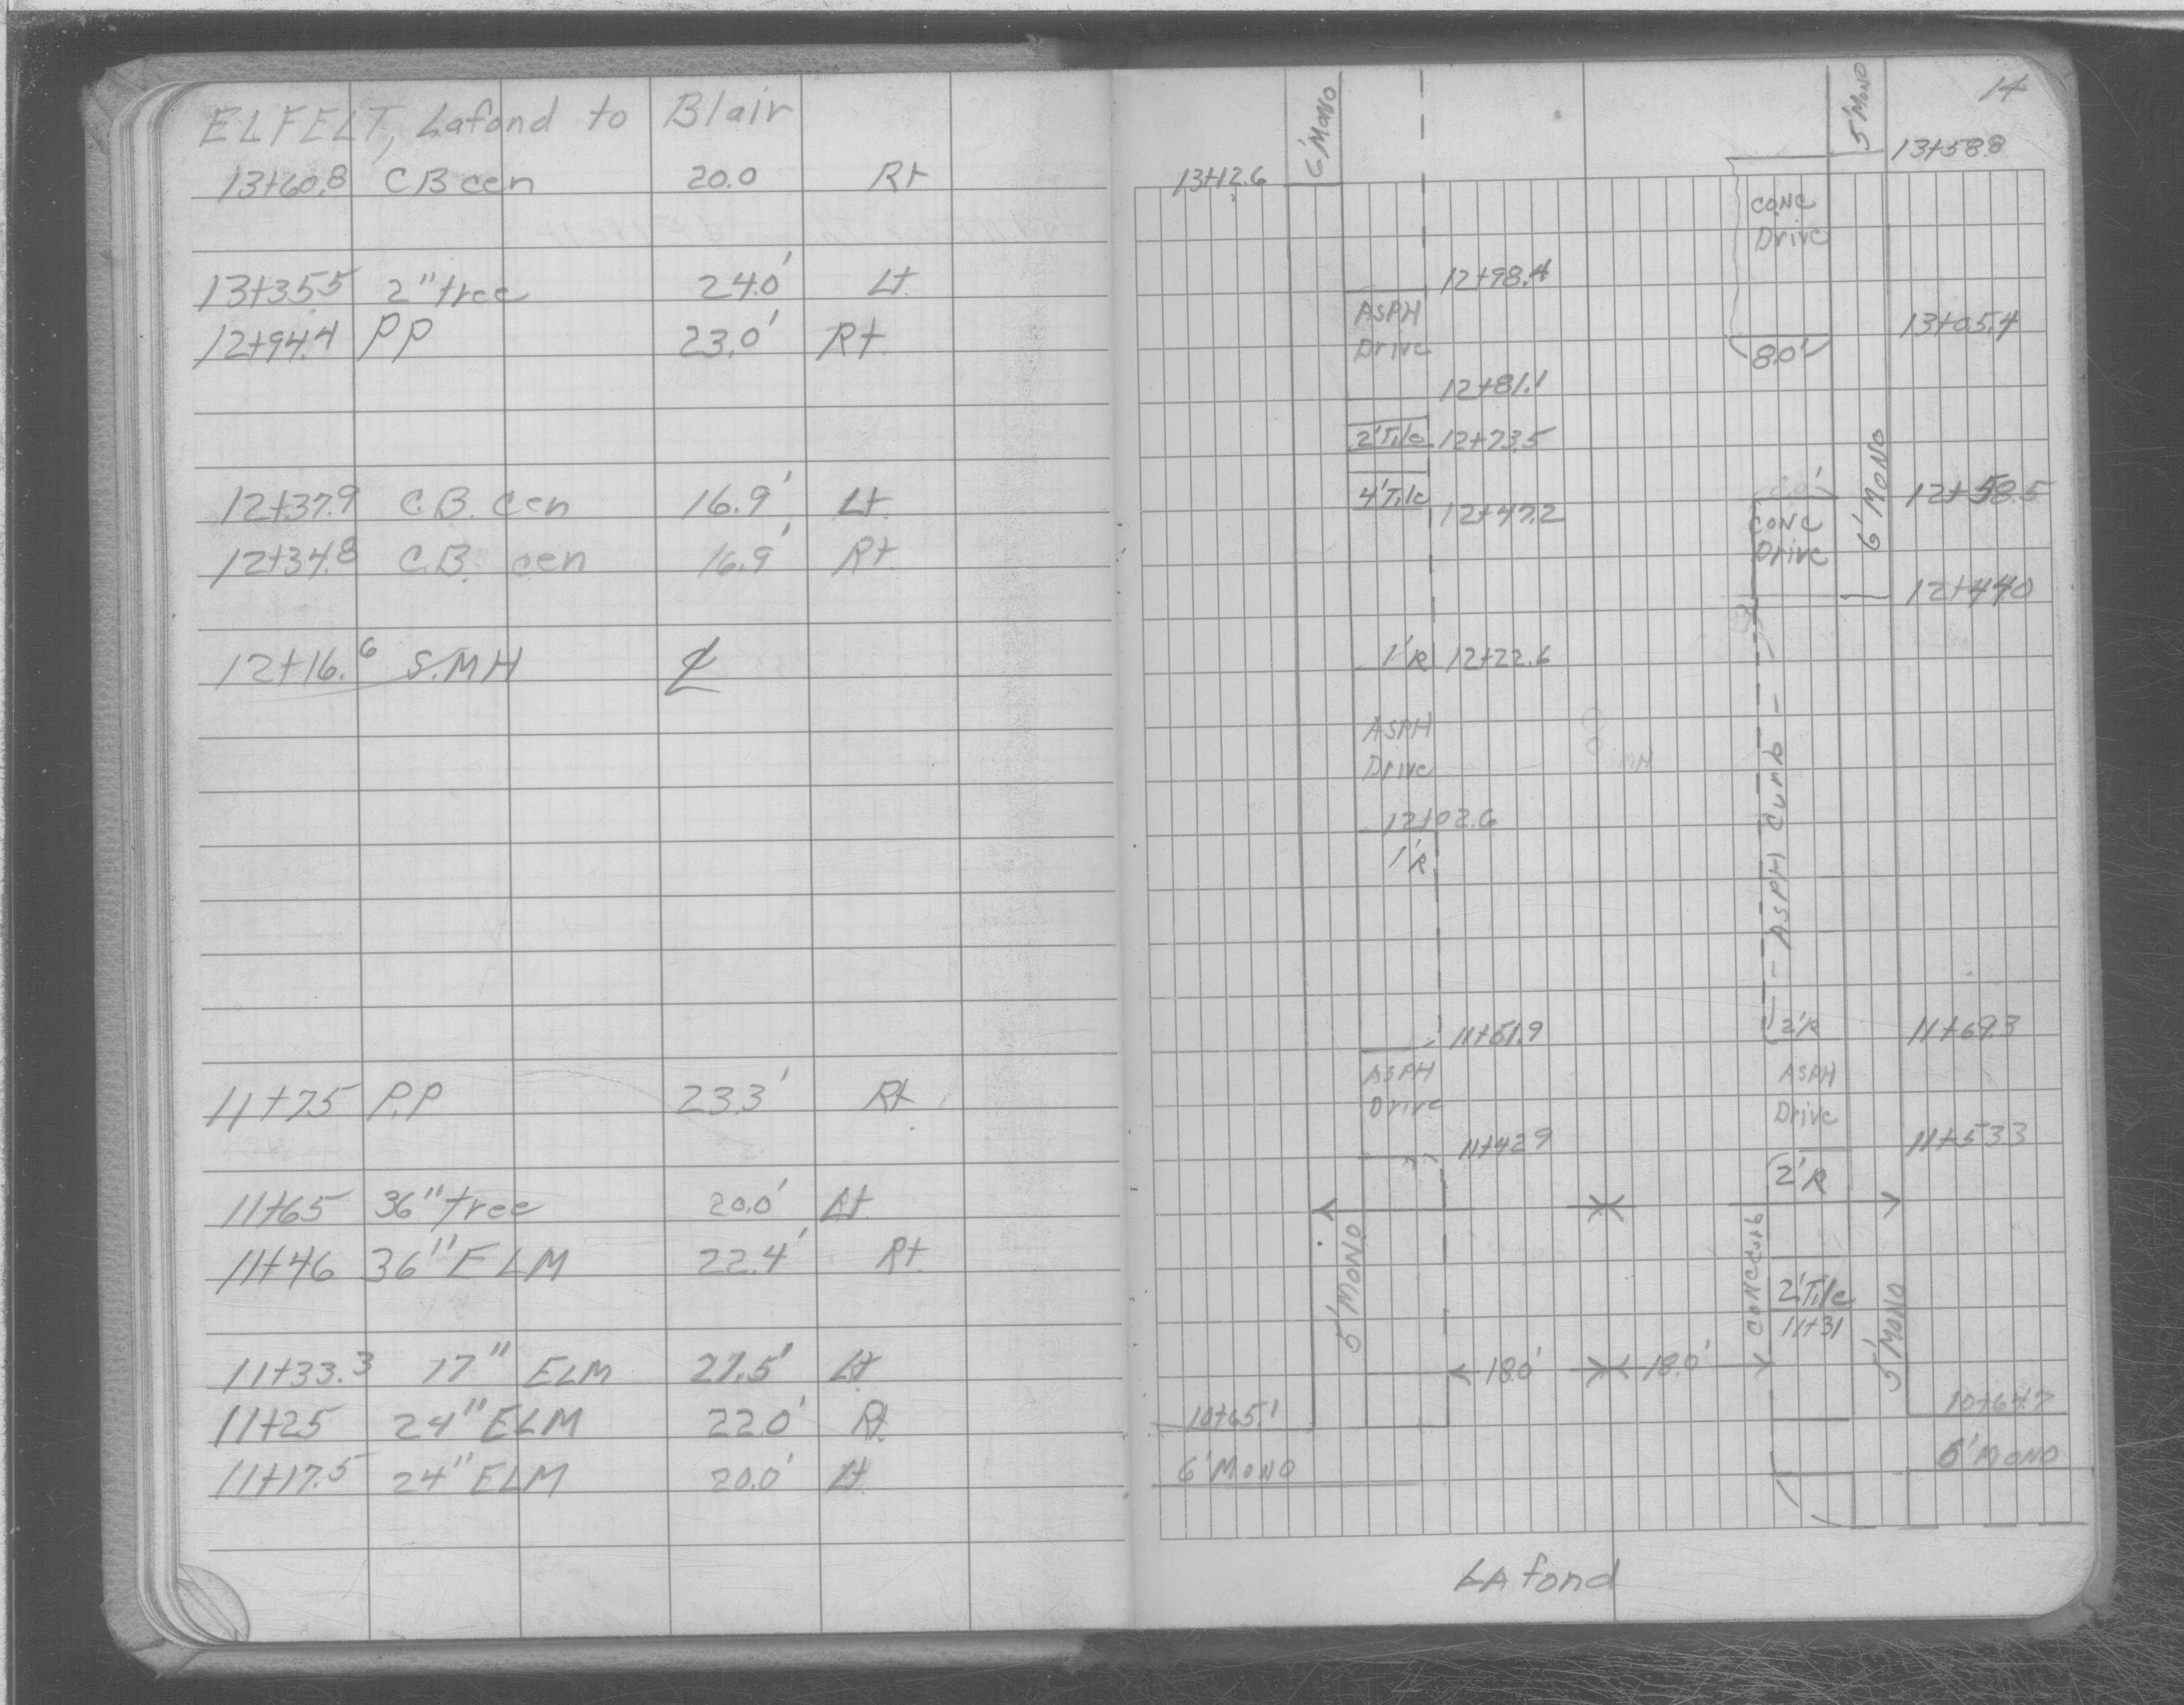 ELFELT, Lafond to Blair
13+60.8 CB cen 20.0 Rt
13+35.5 2" tree 24.0' Lt.
12+94.4 PP 23.0' Rt.
12+37.9 C.B. cen 16.9' Lt.
12+34.8 C.B. cen 16.9' Rt.
12+16.6 S.MH ℄
11+75 P.P 23.3' Rt.
11+65 36" tree 20.0' Lt.
11+46 36" ELM 22.4' Rt.
11+33.3 17" ELM 27.5' Lt
11+25 24" ELM 22.0' Rt.
11+17.5 24" ELM 20.0' Lt.
14
6' MONO
5' MONO
13+58.8
13+12.6
CONC
Drive
12+98.4
ASPH
Drive
13+05.4
8.0'
12+81.1
2' Tile 12+73.5
6' MONO
4' Tile
12+47.2
8.0'
12+58.5
CONC
Drive
12+44.0
1' R 12+22.6
ASPH
Drive
MH
ASPH Curb
12+02.6
1' R
2' R
11+69.3
ASPH
Drive
ASPH
Drive
11+42.9
11+53.3
2' R
5' MONO
CONC Curb
2' Tile
11+31
5' MONO
18.0' 18.0'
10+65.1
6' MONO
5' MONO
LAfond